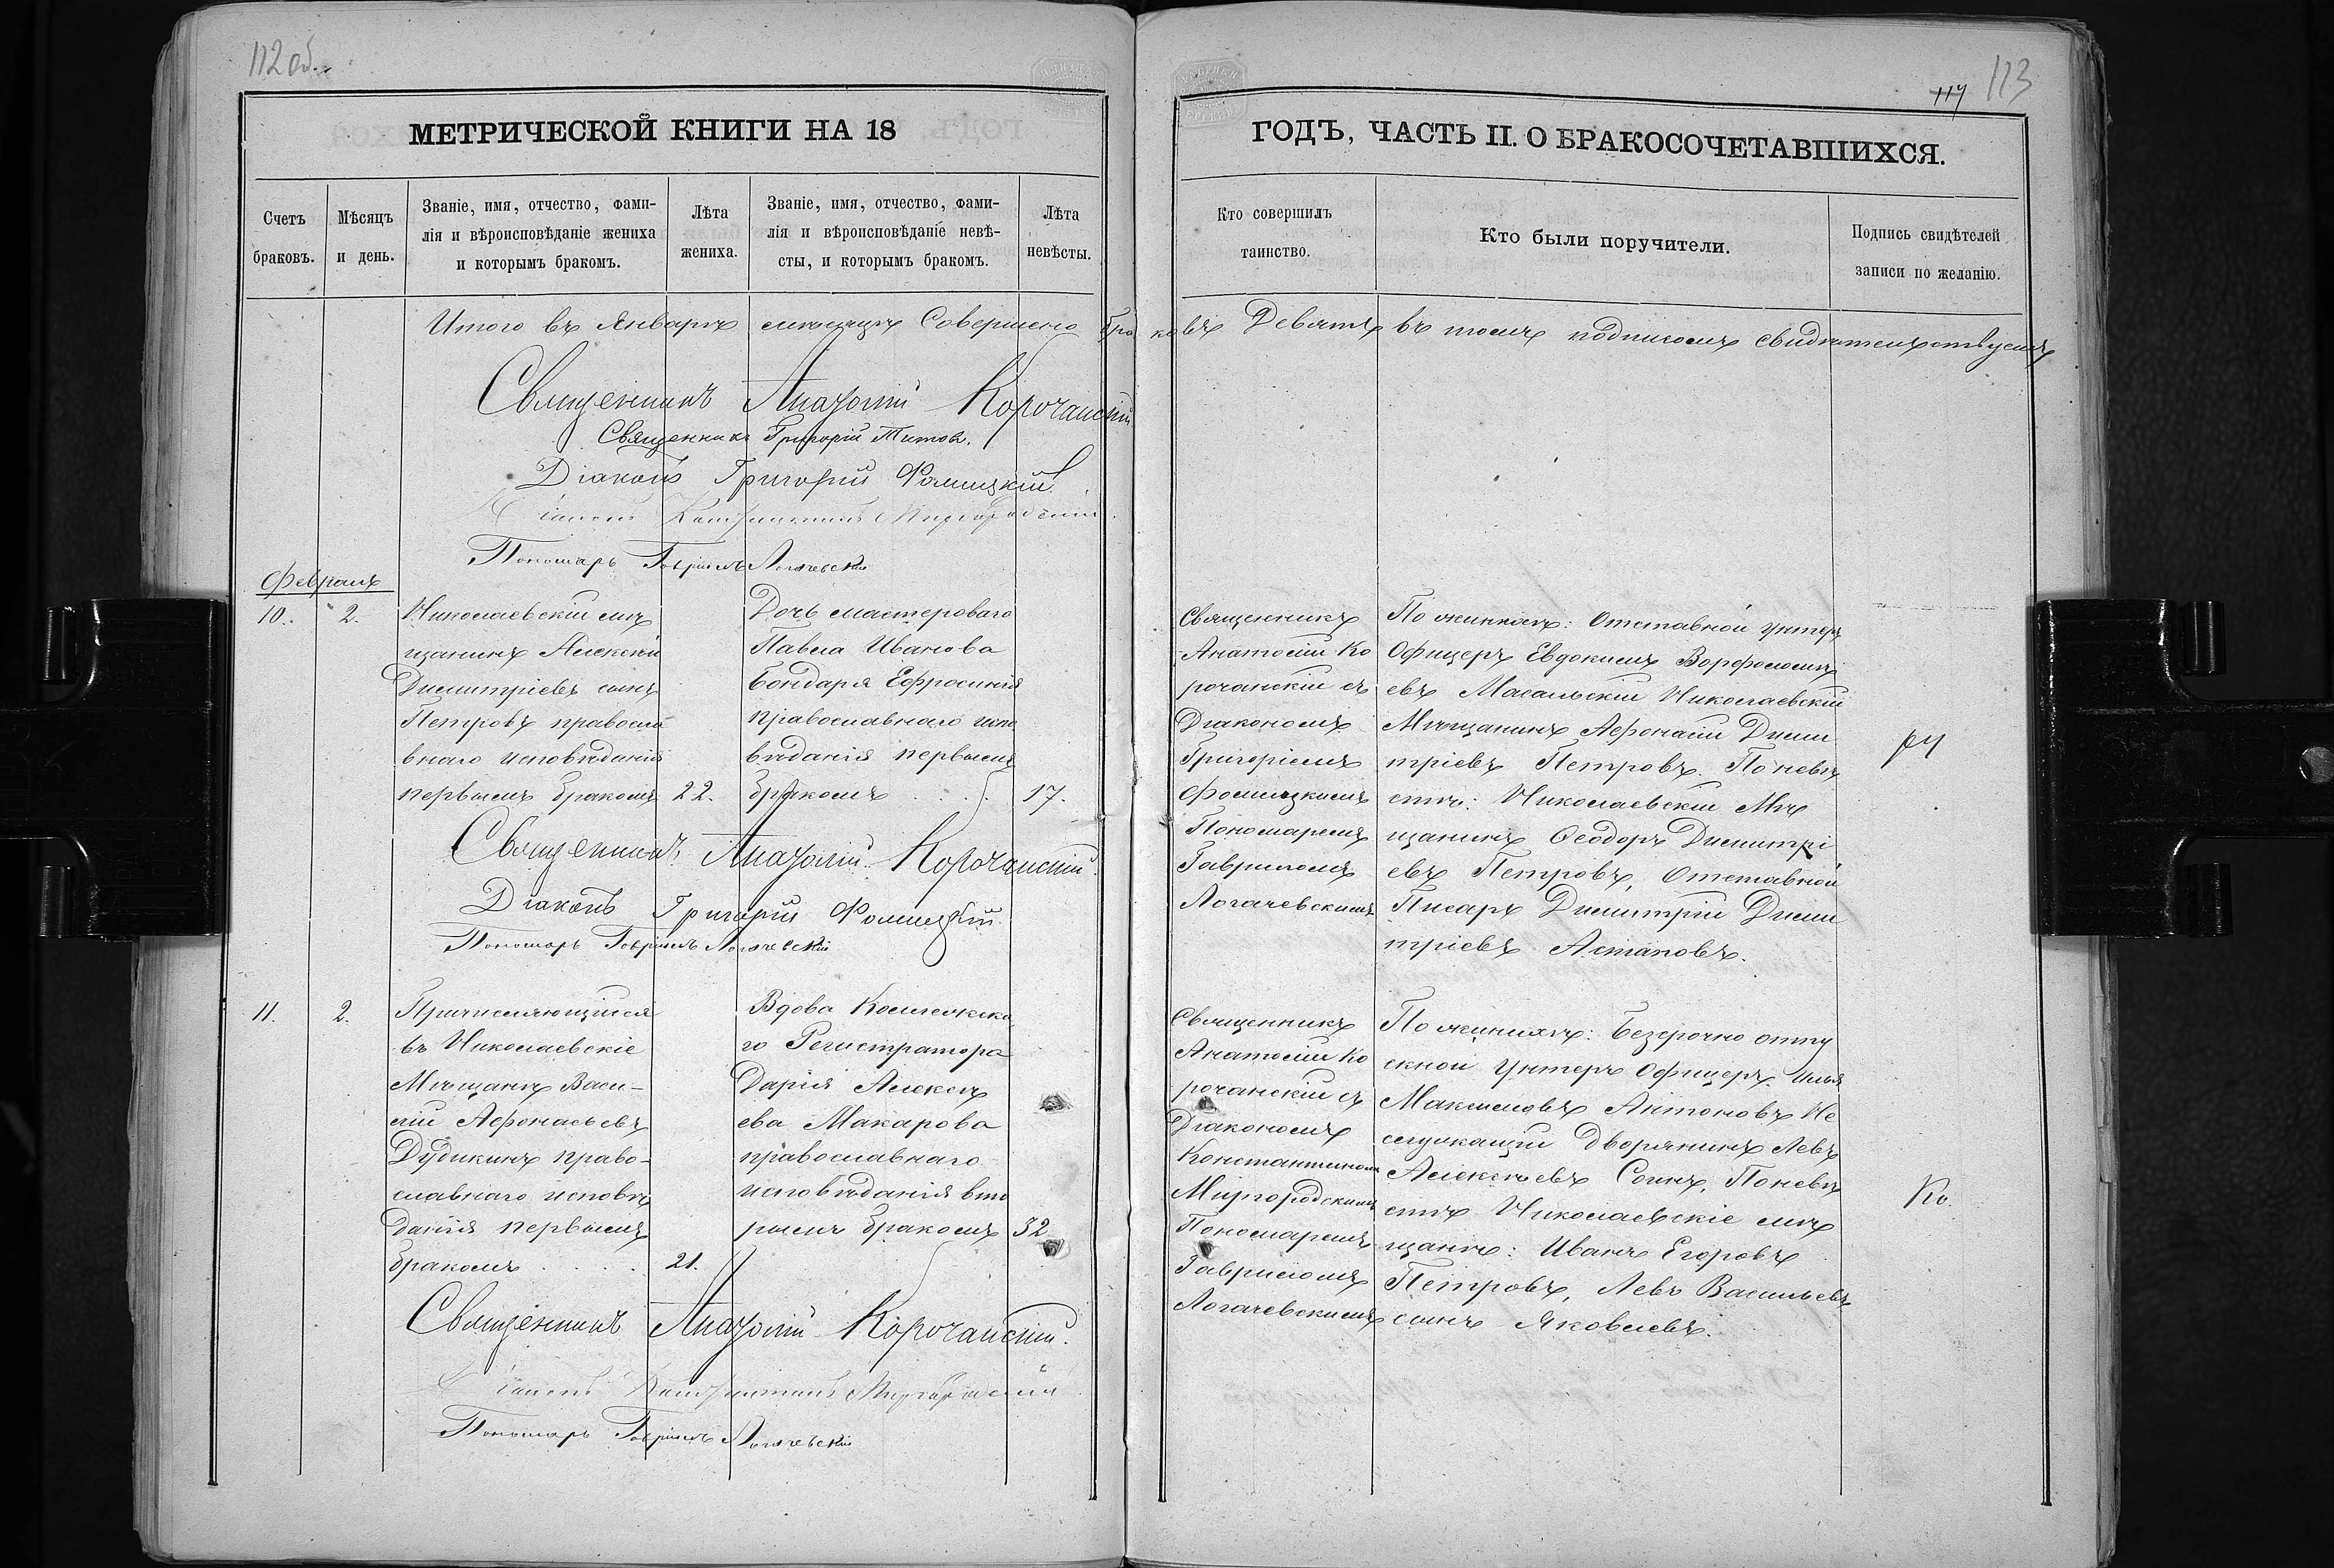 112 об.
МЕТРИЧЕСКОЙ КНИГИ НА 18
Счетъ браковъ.
Мѣсяцъ и день.
Званіе, имя, отчество, фами-
лія и вѣроисповѣданіе жениха
и которымъ бракомъ.
Лѣта жениха.
Званіе, имя, отчество, фами-
лія и вѣроисповѣданіе невѣ-
сты, и которымъ бракомъ.
Лѣта невѣсты.
Итого въ Январѣ мѣсяцѣ Совершено бра
Священникъ Анатолій Корочанскій
Священникъ Григорій Титов.
Діаконъ Григорій Фомицкій
Діаконъ Константинъ Миргородскій
Пономарь Гавріилъ Логачевскій
Февраль
10.
2.
Николаевскій мѣ
щанинъ Алексѣй
Димитріевъ сынъ
Петровъ правосла
внаго исповѣданія
первымъ бракомъ
22.
Дочь мастероваго
Павла Иванова
Бондаря Ефросинія
православнаго испо
вѣданія первымъ
бракомъ
17.
Священникъ Анатолій Корочанскій
Діаконъ Григорій Фомицкій
Пономарь Гавріилъ Логачевскій
11.
2.
Причисляющійся
въ Николаевскіе
Мѣщанѣ Васи-
лій Афонасьевъ
Дудикинъ право-
славнаго исповѣ
данія первымъ
бракомъ
21.
Вдова Коллежска
го Регистратора
Дарія Алексѣ
ева Макарова
православнаго
исповѣданія вто
рымъ бракомъ
32
Священникъ Анатолій Корочанскій.
Діаконъ Константинъ Миргородскій
Пономарь Гавріилъ Логачевскій
117
113
ГОДЪ, ЧАСТЬ II. О БРАКОСОЧЕТАВШИХСЯ.
Кто совершилъ
таинство.
Кто были поручители.
Подпись свидѣтелей
записи по желанію.
ковъ Девять въ томъ подписомъ свидѣтельствуемъ
Священникъ
Анатолій Ко
рочанскій съ
Діакономъ
Григоріемъ
Фомицкимъ
Пономаремъ
Гавріиломъ
Логачевскимъ
По женихѣ: Отставной унтеръ
Офицеръ Евдокимъ Ворфоломѣ
евъ Масальскій Николаевскій
Мѣщанинъ Афонасій Дими
тріевъ Петровъ. По невѣ
стѣ: Николаевскій Мѣ
щанинъ Ѳеодоръ Димитрі
евъ Петровъ, Отставной
Писарь Димитрій Дими
тріевъ Астаповъ.
ру
Священникъ
Анатолій Ко
рочанскій съ
Діакономъ
Константиномъ
Миргородскимъ
Пономаремъ
Гавріиломъ
Логачевскимъ
По женихѣ: Безсрочно отпу
скной Унтеръ Офицеръ Илья
Максимовъ Антоновъ Не
служащій Дворянинъ Левъ
Алексѣевъ Сонъ, По невѣ
стѣ Николаевскіе мѣ
щанѣ: Иванъ Егоровъ
Петровъ, Левъ Васильевъ
сынъ Яковлевъ.
Ко.